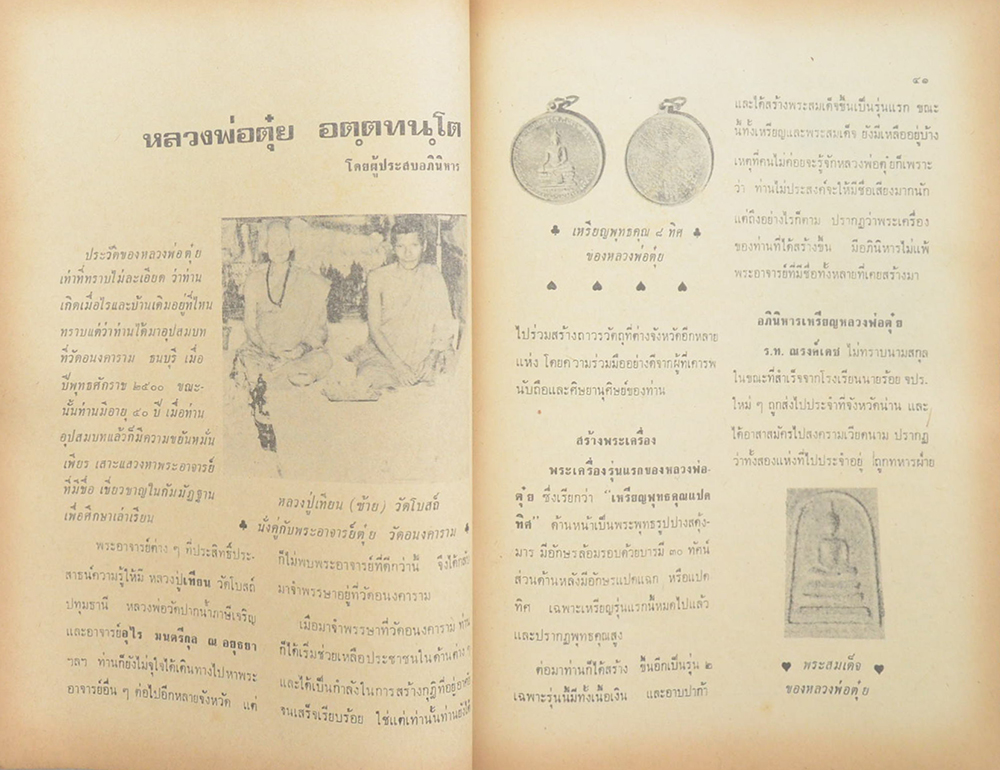 หลวงพ่อตุ๋ย อตฺตทนฺโต
โดยผู้ประสบอภินิหาร
ประวัติของหลวงพ่อตุ๋ย
เท่าที่ทราบไม่ละเอียด ว่าท่าน
เกิดเมื่อไรและบ้านเดิมอยู่ที่ไหน
ทราบแต่ว่าท่านได้มาอุปสมบท
ที่วัดอนงคาราม ธนบุรี เมื่อ
ปีพุทธศักราช ๒๕๐๐ ขณะ-
นั้นท่านมีอายุ ๔๐ ปี เมื่อท่าน
อุปสมบทแล้วก็มีความขยันหมั่น
เพียร เสาะแสวงหาพระอาจารย์
ที่มีชื่อ เชี่ยวชาญในกัมมัฏฐาน
เพื่อศึกษาเล่าเรียน
พระอาจารย์ต่าง ๆ ที่ประสิทธิ์ประ-
สาธน์ความรู้ให้มี หลวงปู่เทียน วัดโบสถ์
ปทุมธานี หลวงพ่อวัดปากน้ำภาษีเจริญ
และอาจารย์อุไร มนตรีกุล ณ อยุธยา
ฯลฯ ท่านก็ยังไม่จุใจได้เดินทางไปหาพระ
อาจารย์อื่น ๆ ต่อไปอีกหลายจังหวัด แต่
หลวงปู่เทียน (ซ้าย) วัดโบสถ์
♣ นั่งคู่กับพระอาจารย์ตุ๋ย วัดอนงคาราม ♠
ก็ไม่พบพระอาจารย์ที่ดีกว่านี้ จึงได้กลับ
มาจำพรรษาอยู่ที่วัดอนงคาราม
เมื่อมาจำพรรษาที่วัดอนงคาราม ท่าน
ก็ได้เริ่มช่วยเหลือประชาชนในด้านต่าง ๆ
และได้เป็นกำลังในการสร้างกุฏิที่อยู่อาศัย
จนเสร็จเรียบร้อย ใช่แต่เท่านั้นท่านยังได้
๔๑
♣ เหรียญพุทธคุณ ๘ ทิศ ♣
ของหลวงพ่อตุ๋ย
♥ ♠ ♠ ♠
ไปร่วมสร้างถาวรวัตถุที่ต่างจังหวัดอีกหลาย
แห่ง โดยความร่วมมืออย่างดีจากผู้ที่เคารพ
นับถือและศิษยานุศิษย์ของท่าน
สร้างพระเครื่อง
พระเครื่องรุ่นแรกของหลวงพ่อ-
ตุ๋ย ซึ่งเรียกว่า "เหรียญพุทธคุณแปด
ทิศ" ด้านหน้าเป็นพระพุทธรูปปางสดุ้ง-
มาร มีอักษรล้อมรอบด้วยบารมี ๓๐ ทัศน์
ส่วนด้านหลังมีอักษรแปดแฉก หรือแปด
ทิศ เฉพาะเหรียญรุ่นแรกนี้หมดไปแล้ว
และปรากฏพุทธคุณสูง
ต่อมาท่านก็ได้สร้าง ขึ้นอีกเป็นรุ่น ๒
เฉพาะรุ่นนี้มีทั้งเนื้อเงิน และอาบปาก้า
และได้สร้างพระสมเด็จขึ้นเป็นรุ่นแรก ขณะ
นี้ทั้งเหรียญและพระสมเด็จ ยังมีเหลืออยู่บ้าง
เหตุที่คนไม่ค่อยจะรู้จักหลวงพ่อตุ๋ยก็เพราะ
ว่า ท่านไม่ประสงค์จะให้มีชื่อเสียงมากนัก
แต่ถึงอย่างไรก็ตาม ปรากฏว่าพระเครื่อง
ของท่านที่ได้สร้างขึ้น มีอภินิหารไม่แพ้
พระอาจารย์ที่มีชื่อทั้งหลายที่เคยสร้างมา
อภินิหารเหรียญหลวงพ่อตุ๋ย
ร.ท. ณรงค์เดช ไม่ทราบนามสกุล
ในขณะที่สำเร็จจากโรงเรียนนายร้อย จปร.
ใหม่ ๆ ถูกส่งไปประจำที่จังหวัดน่าน และ
ได้อาสาสมัครไปสงครามเวียดนาม ปรากฏ
ว่าทั้งสองแห่งที่ไปประจำอยู่ ถูกทหารฝ่าย
♥ พระสมเด็จ ♥
ของหลวงพ่อตุ๋ย